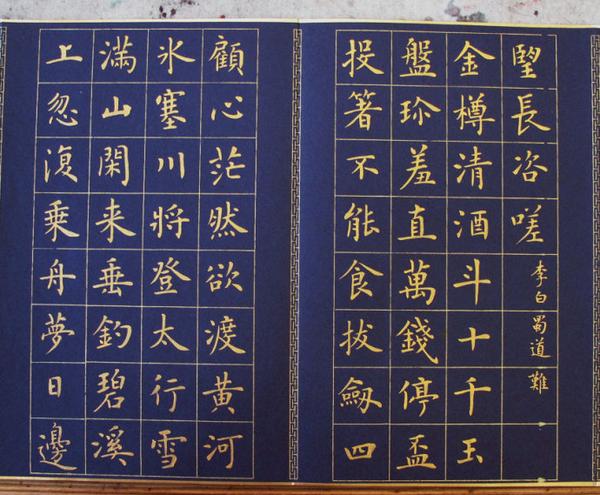 望長咨嗟 李白蜀道難
金樽清酒斗十千玉
盤珍羞直萬錢停盃
投箸不能食拔劒四
顧心茫然欲渡黄河
氷塞川將登太行雪
滿山閑来垂釣碧溪
上忽復乗舟夢日邊